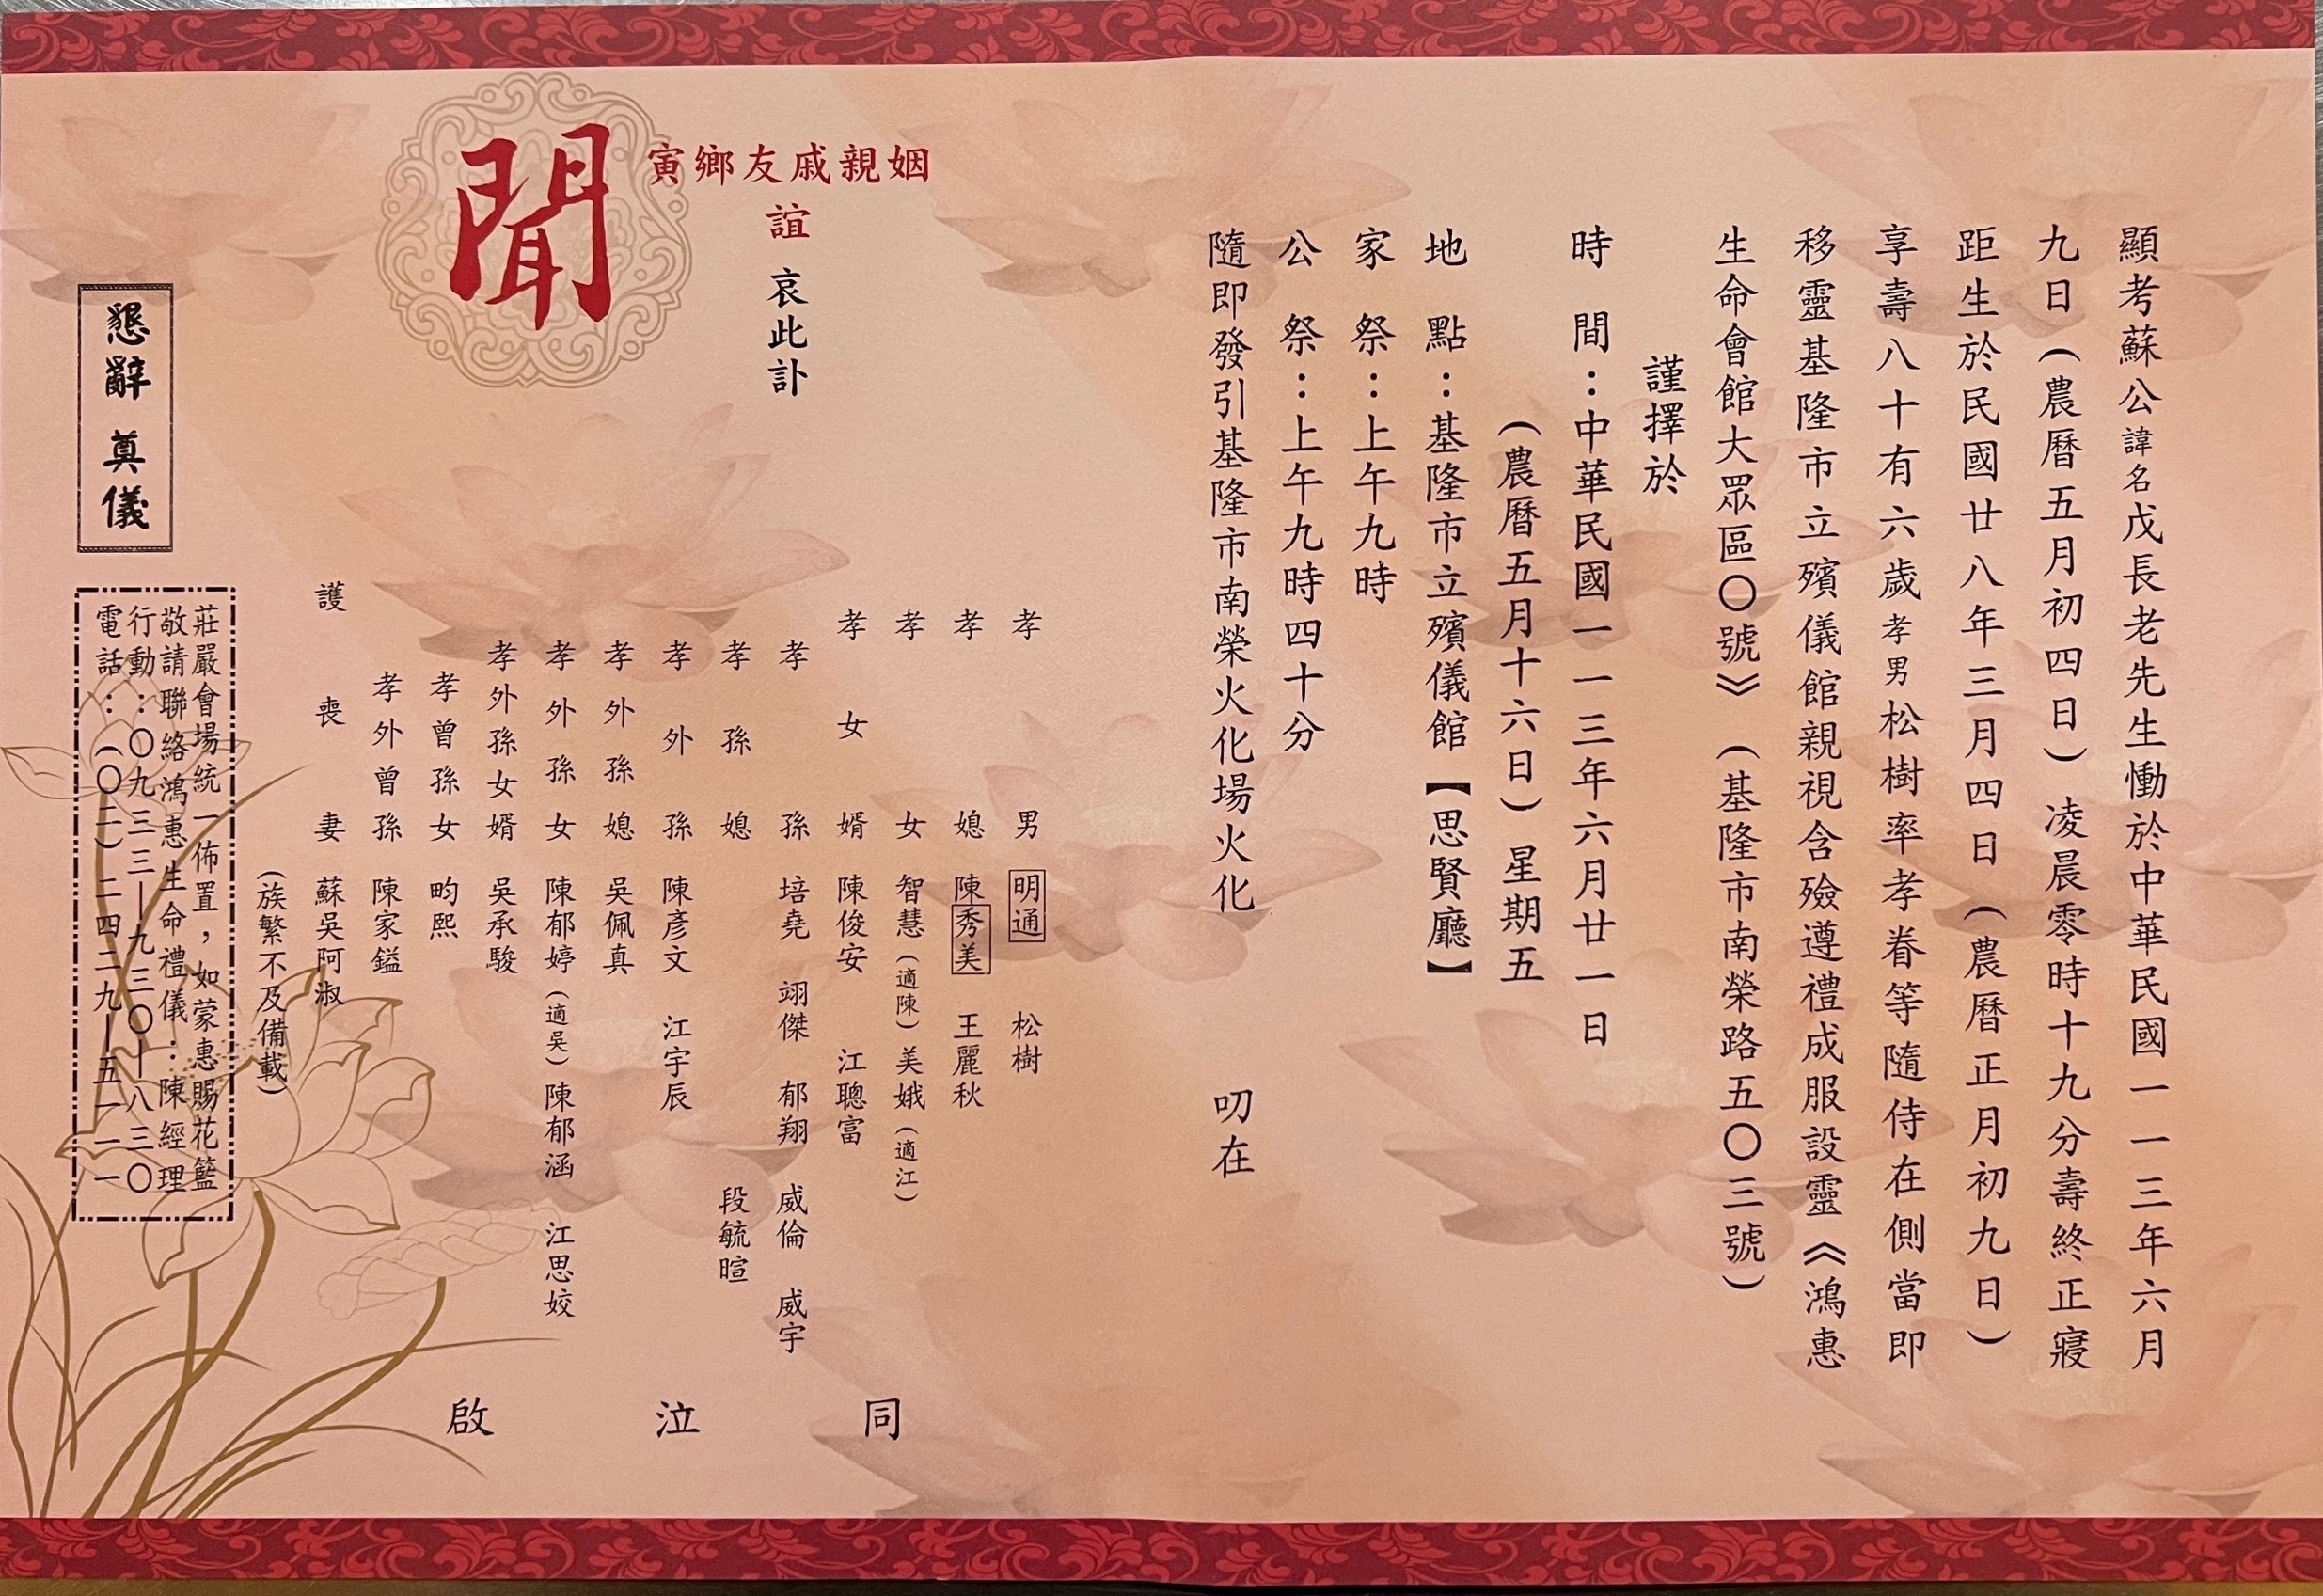 顯考蘇公諱名戊長老先生慟於中華民國一一三年六月
九日(農曆五月初四日)凌晨零時十九分壽終正寢
距生於民國廿八年三月四日(農曆正月初九日)
享壽八十有六歲孝男松樹率孝眷等隨侍在側當即
移靈基隆市立殯儀館親視含殮遵禮成服設靈《鴻惠
生命會館大眾區〇號》(基隆市南榮路五〇三號)
謹擇於
時間：中華民國一一三年六月廿一日
(農曆五月十六日)星期五
地點：基隆市立殯儀館【思賢廳】
家祭：上午九時
公祭：上午九時四十分
隨即發引基隆市南榮火化場火化 叨在
姻親戚友鄉寅
誼 哀此訃
聞
孝男 明通 松樹
孝媳 陳秀美 王麗秋
孝女 智慧(適陳) 美娥(適江)
孝女婿 陳俊安 江聰富
孝孫 培堯 翊傑 郁翔 威倫 威宇
孝孫媳 段毓暄
孝外孫 陳彥文 江宇辰
孝外孫媳 吳佩真
孝外孫女 陳郁婷(適吳) 陳郁涵 江思姣
孝外孫女婿 吳承駿
孝曾孫女 畇熙
孝外曾孫 陳家鎰
護喪妻 蘇吳阿淑
(族繁不及備載)
同泣啟
懇辭 奠儀
莊嚴會場統一佈置，如蒙惠賜花籃
敬請聯絡鴻惠生命禮儀：陳經理
行動：〇九三三—九三〇—八三〇
電話：(〇二)二四二九—五一一一